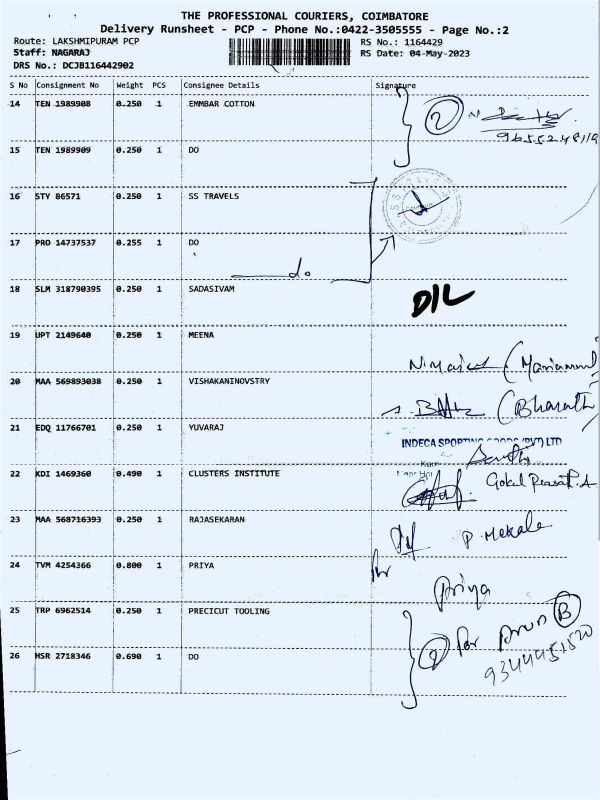 THE PROFESSIONAL COURIERS, COIMBATORE
Delivery Runsheet - PCP - Phone No.:0422-3505555 - Page No.:2
Route: LAKSHMIPURAM PCP
RS No.: 1164429
Staff: NAGARAJ
RS Date: 04-May-2023
DRS No.: DCJB116442902
S No Consignment No Weight PCS Consignee Details Signature
14 TEN 1989908 0.250 1 EMMBAR COTTON
2
15 TEN 1989909 0.250 1 DO
16 STY 86571 0.250 1 SS TRAVELS
17 PRO 14737537 0.255 1 DO
do
18 SLM 318790395 0.250 1 SADASIVAM
D/L
19 UPT 2149640 0.250 1 MEENA
20 MAA 569893038 0.250 1 VISHAKANINOVSTRY
(Bharath)
21 EDQ 11766701 0.250 1 YUVARAJ
INDECA SPORTING GOODS (PVT) LTD
22 KDI 1469360 0.490 1 CLUSTERS INSTITUTE
23 MAA 568716393 0.250 1 RAJASEKARAN
P. Mekala
24 TVM 4254366 0.800 1 PRIYA
for
Priya
25 TRP 6962514 0.250 1 PRECICUT TOOLING
2 for Arun B
26 HSR 2718346 0.690 1 DO